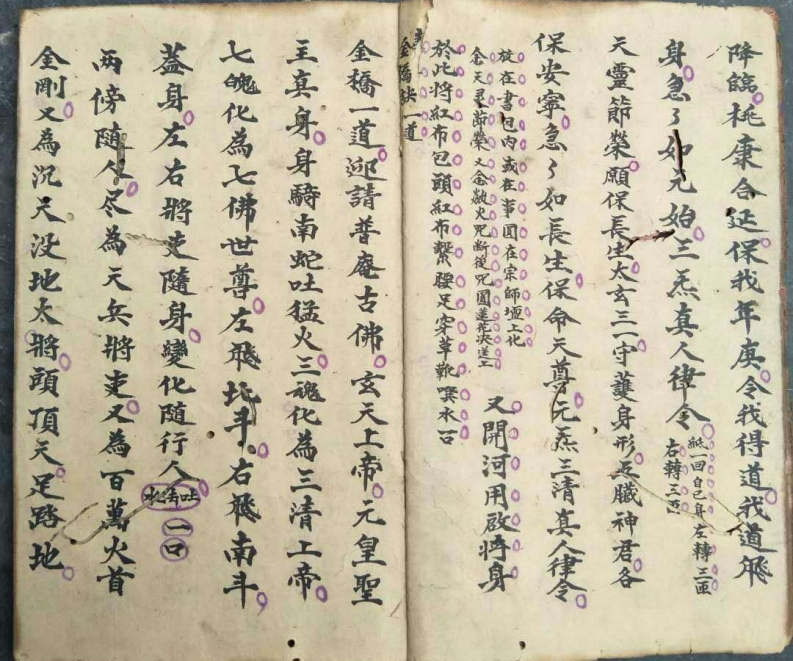 降臨桃康合延保我年庚令我得道我道飛
身急々如元始三炁真人律令
紙一回自己身左轉三匝
右轉三匝
天靈節榮願保長生太玄三一守護身形五臟神君各
保安寧急々如長生保命天尊元炁三清真人律令
放在書包內或在事圓在宗師壇上化
念天灵節榮又念敕火咒断後咒圓蓮花决送上
於此將紅布包頭紅布繫腰足穿草靴噀水一口
又開河用啟將身
金橋訣一道
金橋一道迎請普庵古佛玄天上帝元皇聖
主真身身騎南蛇吐猛火三魂化為三清上帝
七魄化為七佛世尊左飛北斗右飛南斗
蓋身左右將吏隨身變化隨行人
吐法水
一口
兩傍隨人尽為天兵將吏又為百萬火首
金剛又為沉天没地大將頭頂天足踏地